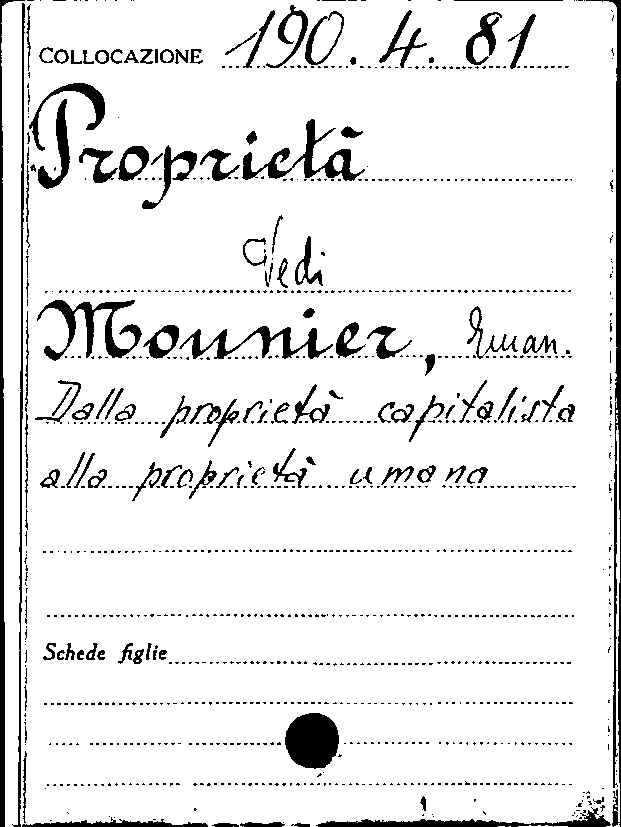 COLLOCAZIONE 190.4.81
Proprietà
Vedi
Mounier, Eman.
Dalla proprietà capitalista
alla proprietà umana
Schede figlie